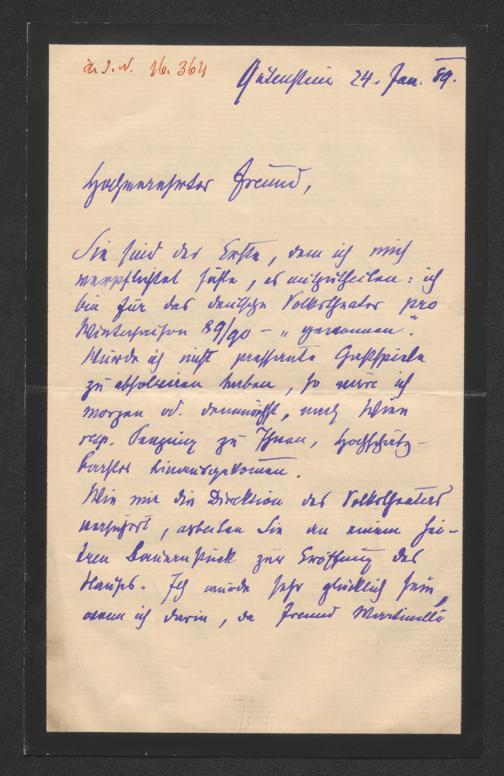 a. J. N. 16.364
Gutenstein 24. Jan. 89.
Hochverehrter Freund,
Sie sind der Erste, dem ich mich
verpflichtet fühle, es mitzutheilen: ich
bin für das deutsche Volkstheater pro
Wintersaison 89/90 – „gewonnen".
Würde ich nicht pressante Gastspiele
zu absolviren haben, so wäre ich
morgen od. demnächst, nach Wien
resp. Penzing zu Ihnen, Hochschätz-
barster hinausgekommen.
Wie mir die Direktion des Volkstheaters
versichert, arbeiten Sie an einem hei-
tren Bauernstück zur Eröffnung des
Hauses. Ich würde sehr glücklich sein,
wenn ich darin, da Freund Martinelli